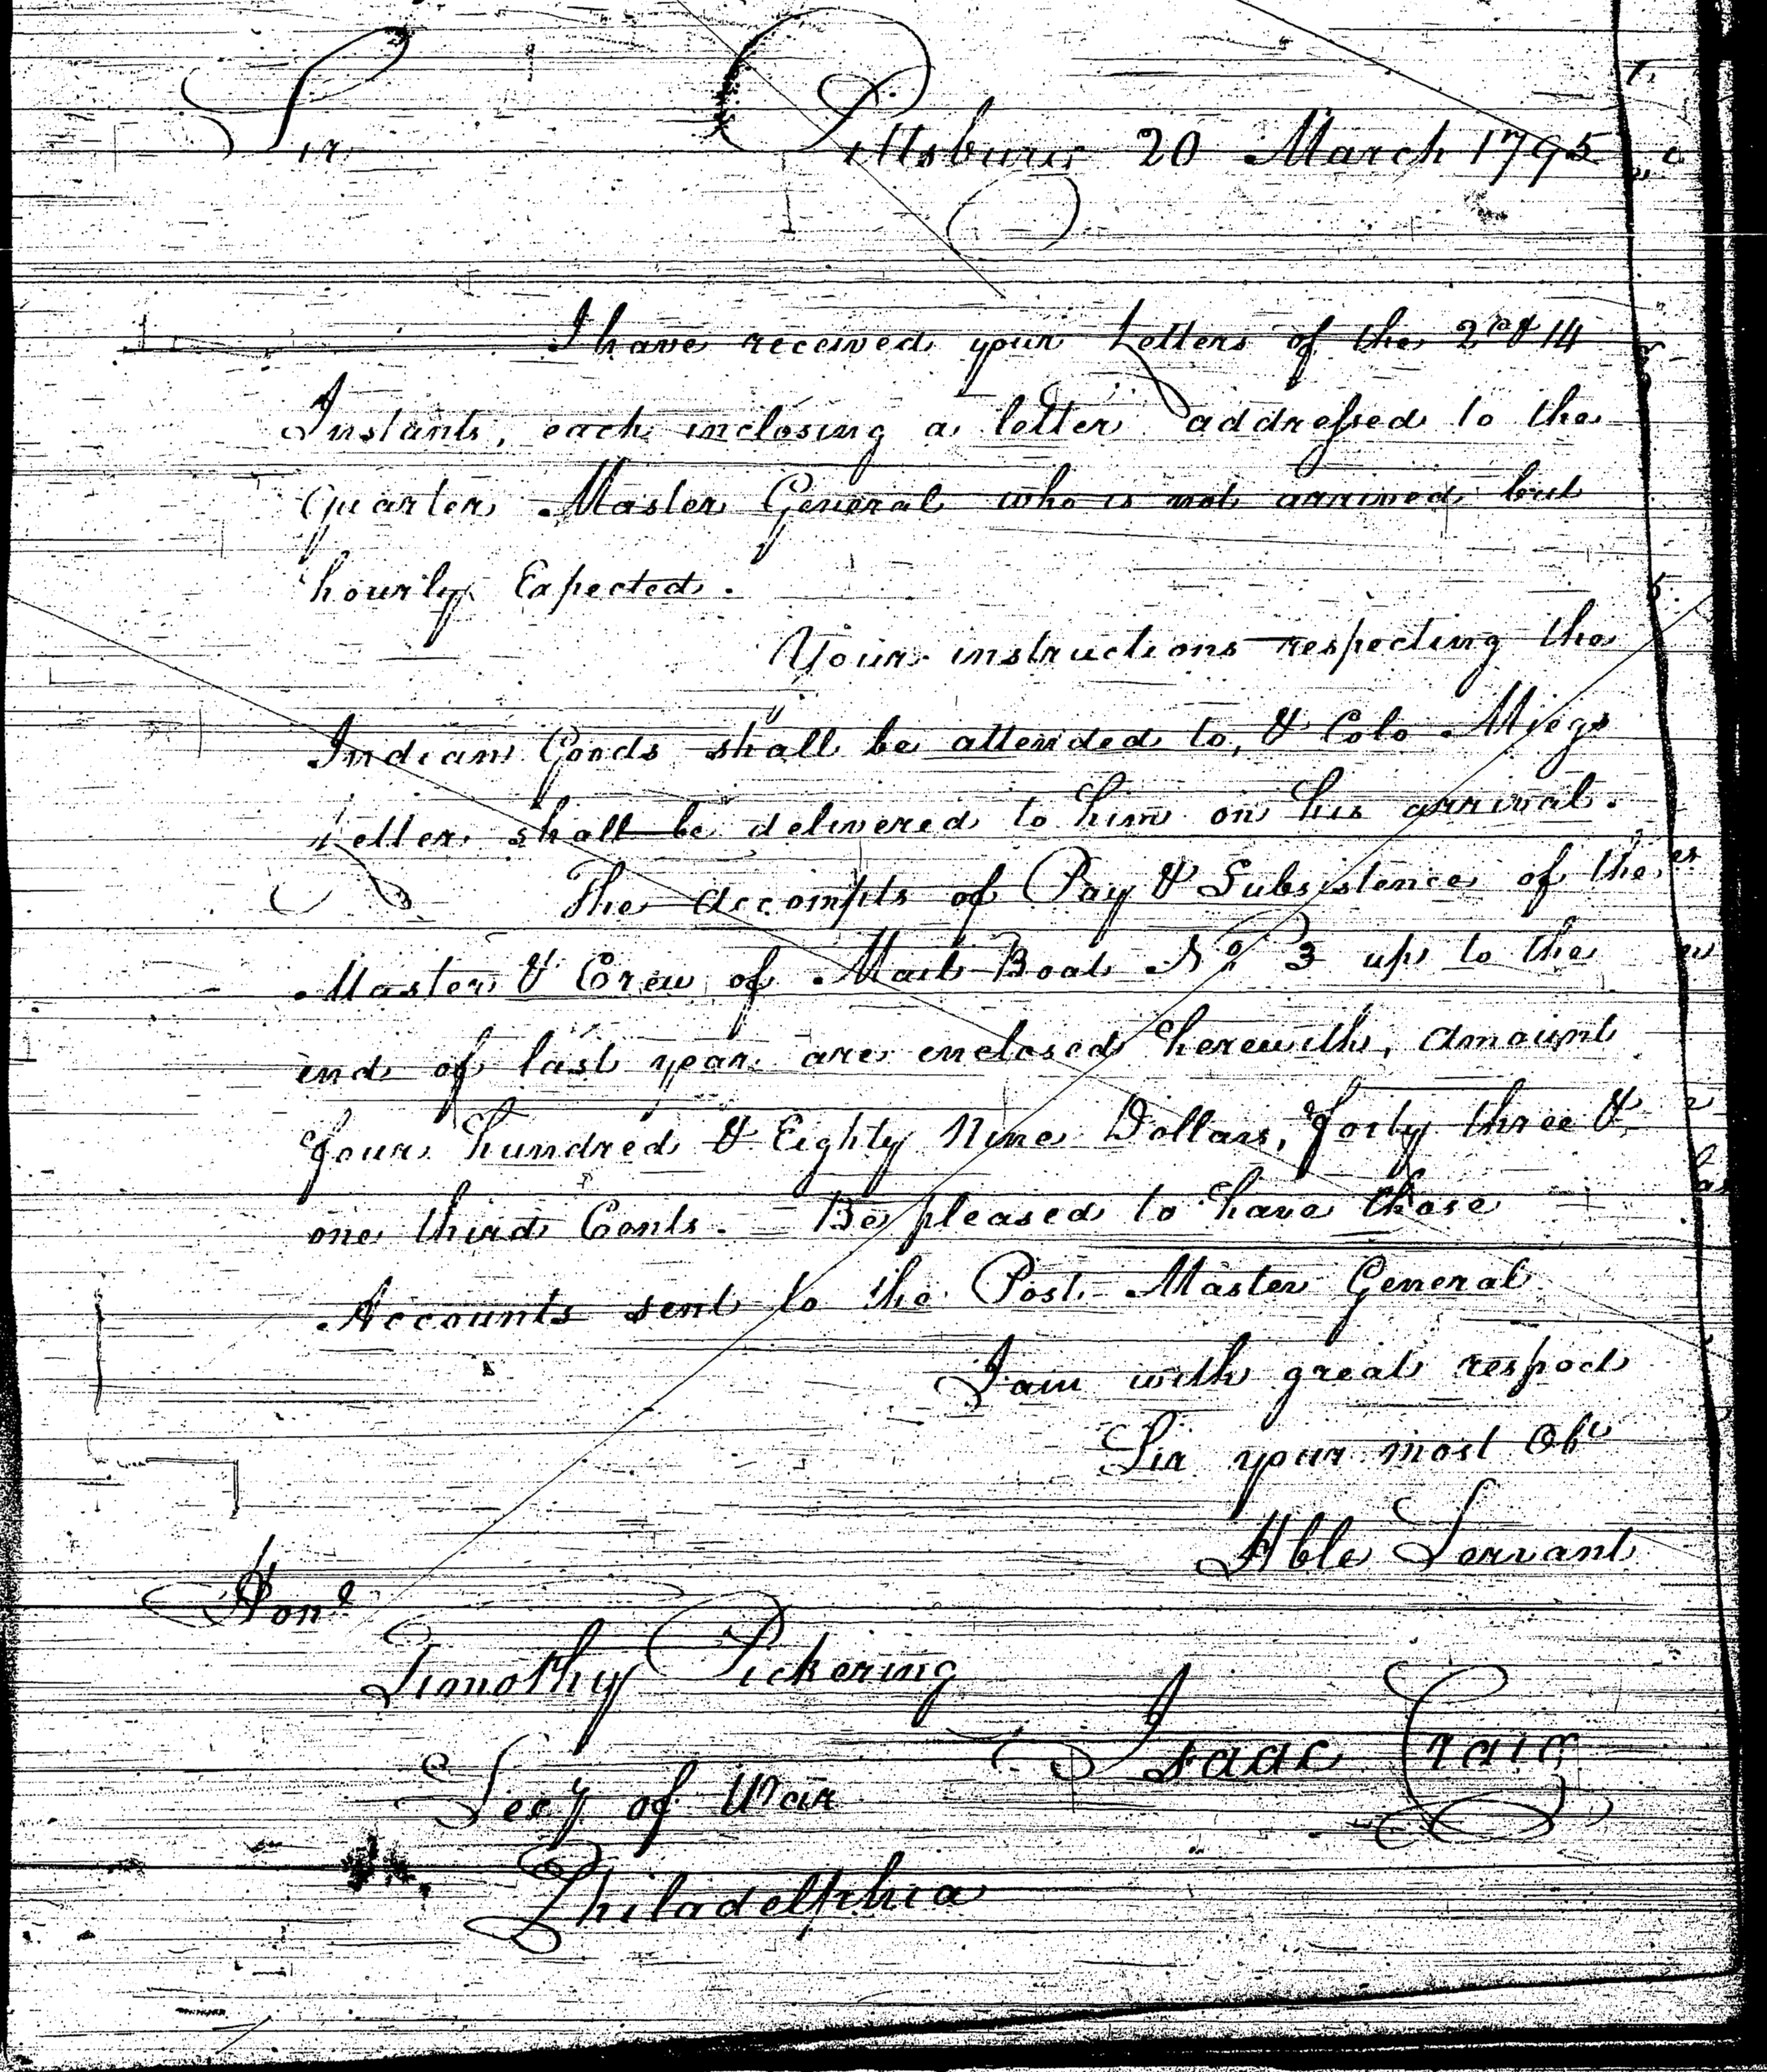 Sir Pittsburg 20 March 1795
I have received your Letters of the 2nd & 14
Instants, each inclosing a letter addressed to the
Quarter Master General who is not arrived but
hourly Expected.
Your instructions respecting the
Indian Goods shall be attended to, & Colo Miegs
Letter shall be delivered to him on his arrival.
The accompts of Pay & Subsistence of the
Master & Crew of Mail Boat No 3 up to the
end of last year are enclosed herewith, amount
four hundred & Eighty Nine Dollars, forty three &
one third Cents. Be pleased to have those
Accounts sent to the Post Master General
I am with great respect
Sir your most Obt
Hble Servant
Honl
Timothy Pickering
Isaac Craig
Secy of War
Philadelphia